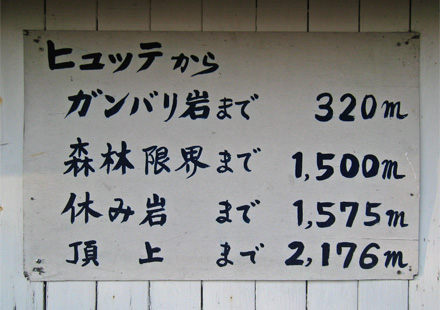 ヒュッテから
ガンバリ岩まで 320m
森林限界まで 1,500m
休み岩 まで 1,575m
頂上 まで 2,176m